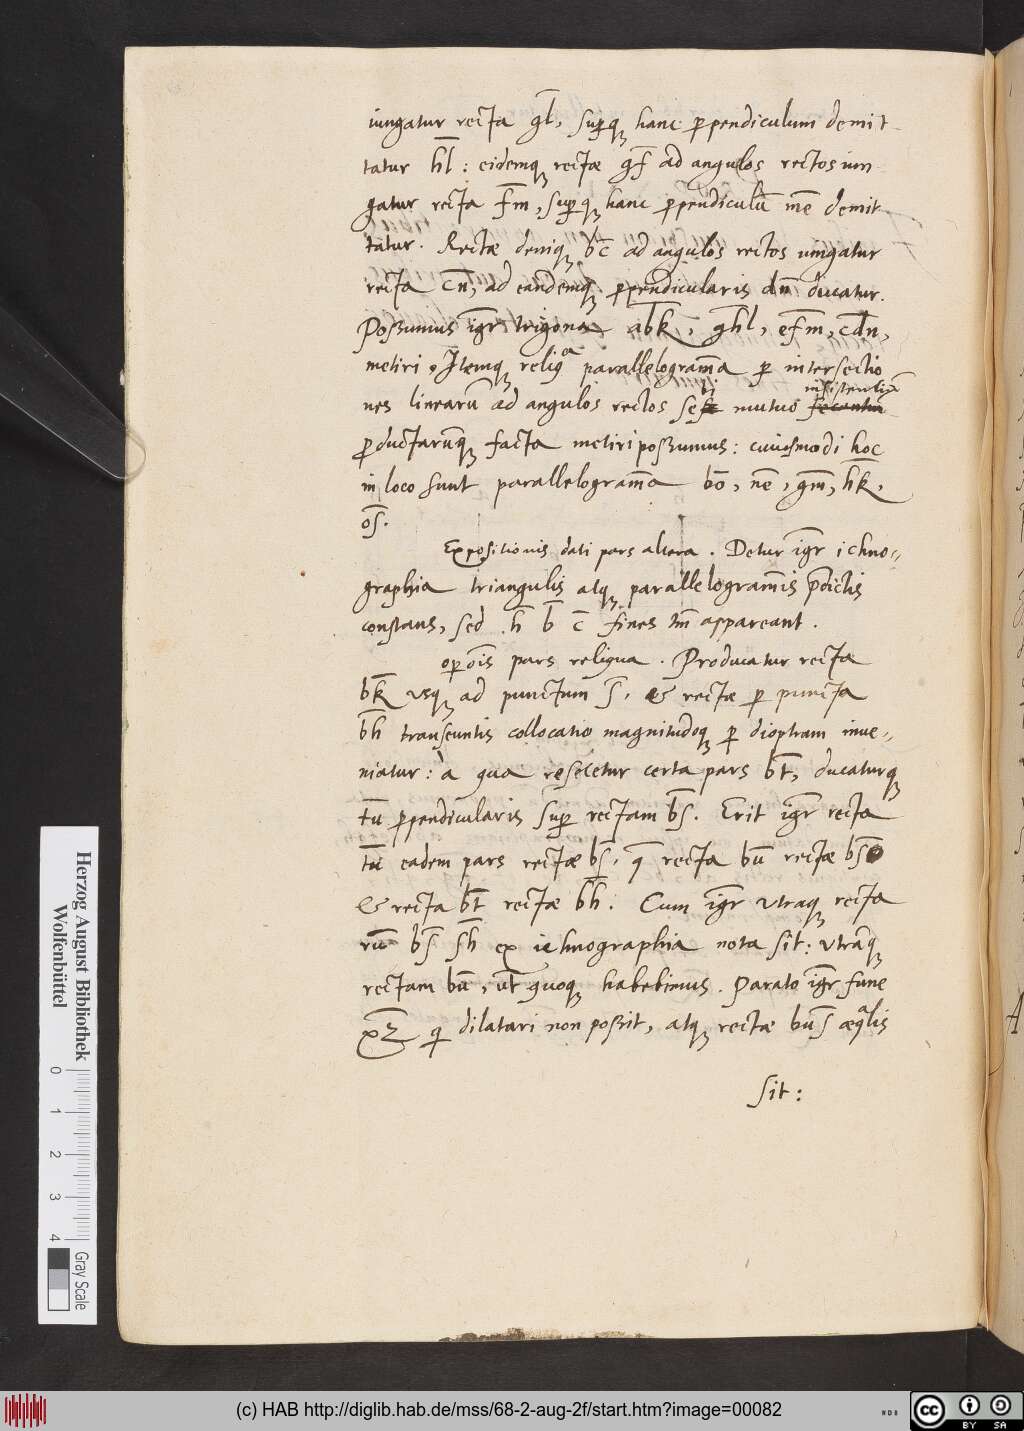 iungatur recta g̅l̅, sup̱q₃ hanc p̱pendiculum demit
tatur h̅l̅: eidemq₃ rectæ g̅f̅ ad angulos rectos iun
gatur recta f̅m̅, sup̱q₃ hanc p̱pendiculū m̅e̅ demit
tatur. Rectæ deniq₃ b̅c̅ ad angulos rectos iungatur
recta c̅n̅, ad eandemq₃ p̱pendicularis d̅n̅ ducatur.
Possumus igr̅ trigona a̅b̅k̅, g̅h̅l̅, e̅f̅m̅, c̅d̅n̅,
metiri, Itemq₃ reliqᵃ parallelogram̅a p̱ intersectio
nes linearū ad angulos rectos sebi mutuo insistentiū
p̱ductarumq₃ facta metiri possumus: cuiusmodi hoc
in loco sunt parallelogram̅a b̅o̅, n̅e̅, g̅m̅, h̅k̅,
o̅s̅.
Expositionis dati pars altera. Detur igr̅ ichno„
graphia triangulis atq₃ parallelogram̅is p̅dictis
constans, sed h̅ b̅ c̅ fines tm̅ appareant.
op̱ois̅ pars reliqua. Producatur recta
b̅k̅ vsq₃ ad punctum s̅, & rectæ p̱ puncta
b̅h̅ transeuntis collocatio magnitudoq₃ p̱ dioptram inue„
niatur: a qua resecetur certa pars b̅t̅, ducaturq₃
t̅u̅ p̱pendicularis sup̱ rectam b̅s̅. Erit igr̅ recta
t̅u̅ eadem pars rectæ b̅s̅, q̅ recta b̅u̅ rectæ b̅s̅
& recta b̅t̅ rectæ b̅h̅. Cum igr̅ vtraq₃ recta
rū b̅s̅ s̅h̅ ex ichnographia nota sit: vtrāq₃
rectam b̅u̅, u̅t̅ quoq₃ habebimus. Parato igr̅ fune
x̅z̅ qi dilatari non possit, atq₃ rectæ b̅u̅s̅ æqᵃlis
sit:
Herzog August Bibliothek
Wolfenbüttel
0 1 2 3 4
Gray Scale
(c) HAB http://diglib.hab.de/mss/68-2-aug-2f/start.htm?image=00082
cc BY SA